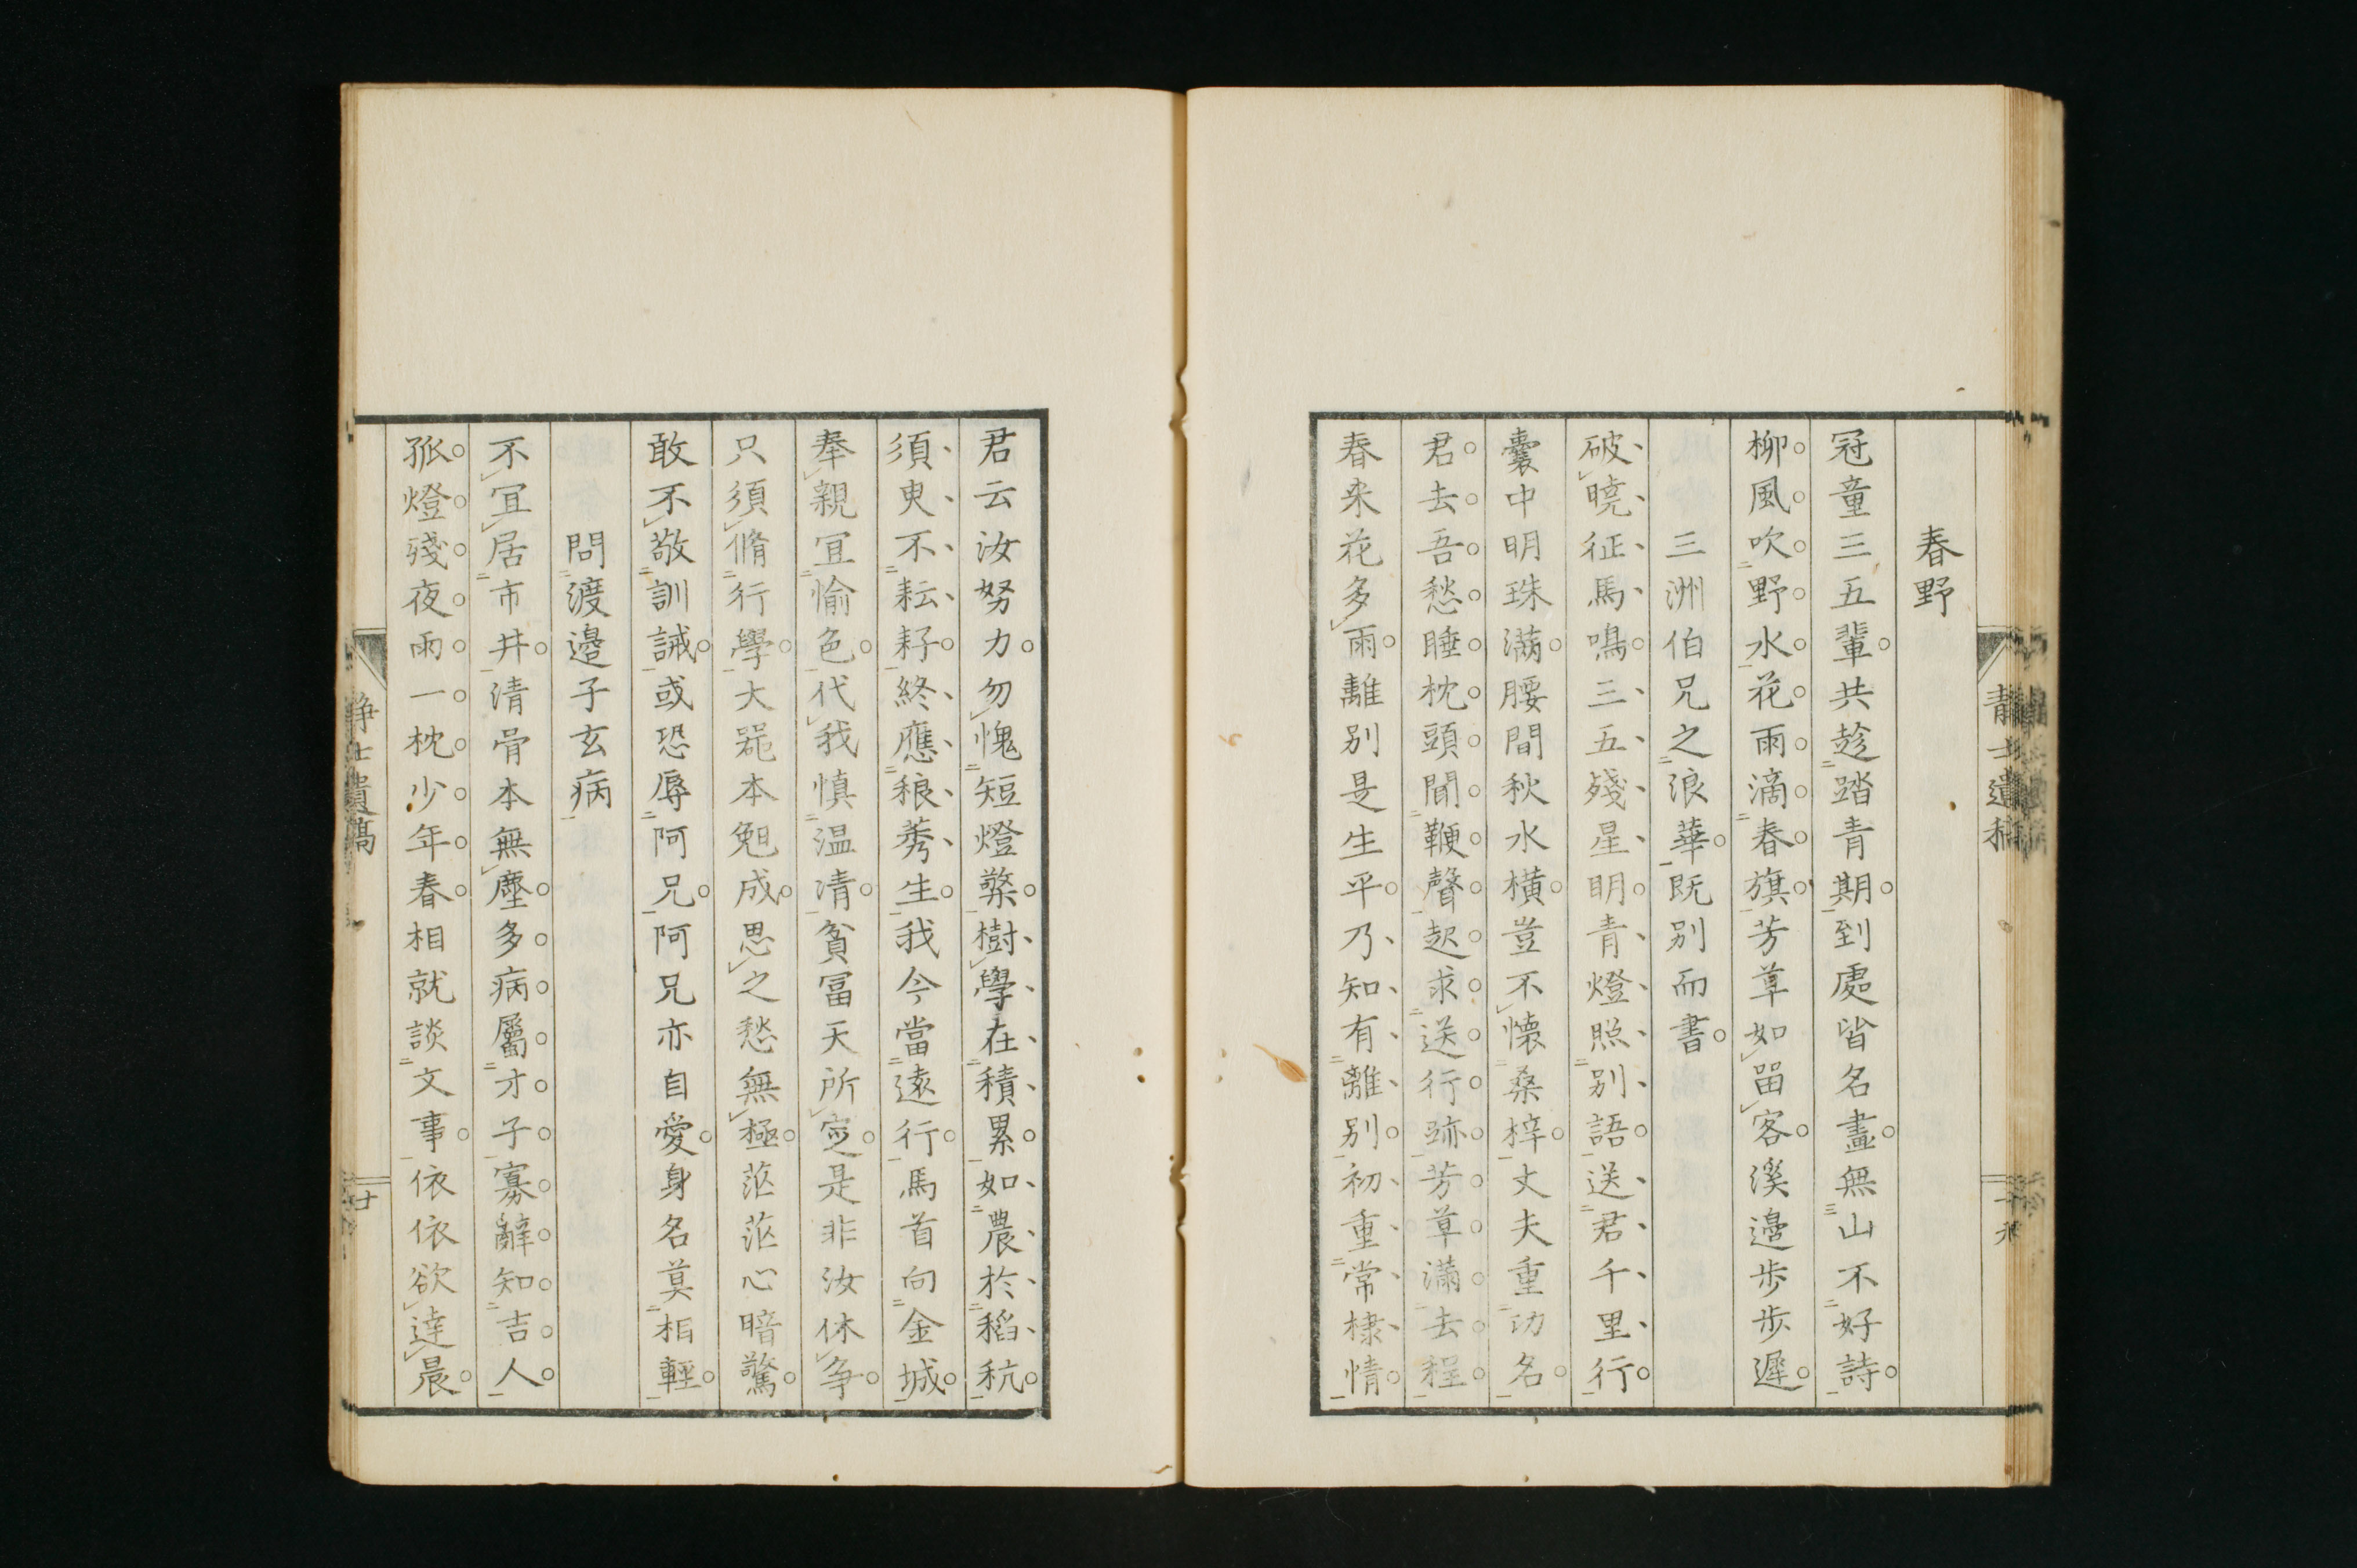 春野
冠童三五輩。共趁踏青期。到處皆名畫。無山不好詩。
柳風吹野水。花雨滴春旗。芳草如留客。溪邊步步遲。
三洲伯兄之浪華。既別而書。
破曉征馬鳴。三五殘星明。青燈照別語。送君千里行。
囊中明珠滿。腰間秋水橫。豈不懷桑梓。丈夫重功名。
君去吾愁睡。枕頭聞鞭聲。起求送行跡。芳草滿去程。
春来花多雨。離別是生平。乃知有離別。初重常棣情。
君云汝努力。勿愧短燈檠。樹學在積累。如農於稻秔。
須臾不耘耔。終應稂莠生。我今當遠行。馬首向金城。
奉親宜愉色。代我慎温凊。貧冨天所定。是非汝休争。
只須脩行學。大器本晚成。思之愁無極。茫茫心暗驚。
敢不敬訓誡。或恐辱阿兄。阿兄亦自愛。身名莫相輕。
問渡邉子玄病
不宜居市井。清骨本無塵。多病屬才子。寡辭知吉人。
孤燈殘夜雨。一枕少年春。相就談文事。依依欲達晨。